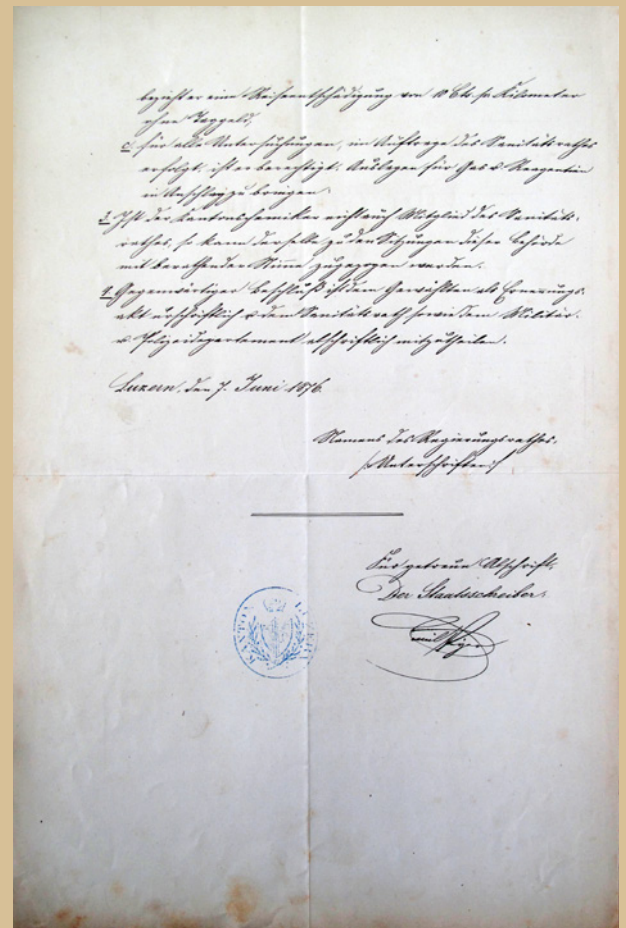 bezieht er eine Reiseentschädigung von 10 Cts. pr Kilometer
ohne Taggeld,
c. für alle Untersuchungen, im Auftrage des Sanitätsrathes
erfolgt, ist er berechtigt, Auslagen für Gas u. Reagentien
in Anschlag zu bringen.
3. Ist der Kantonschemiker nicht auch Mitglied des Sanitäts-
rathes, so kann derselbe zu den Sitzungen dieser Behörde
mit berathender Stimme zugezogen werden.
4. Gegenwärtiger Beschluß ist dem Gewählten als Ernennungs-
akt urschriftlich u. dem Sanitätsrath sowie dem Militär-
u. Polizeidepartement abschriftlich mitzutheilen.
Luzern, den 7. Juni 1876.
Namens des Regierungsrathes.
(:Unterschriften:)
Für getreue Abschrift,
Der Staatsschreiber:
KANTON LUZERN